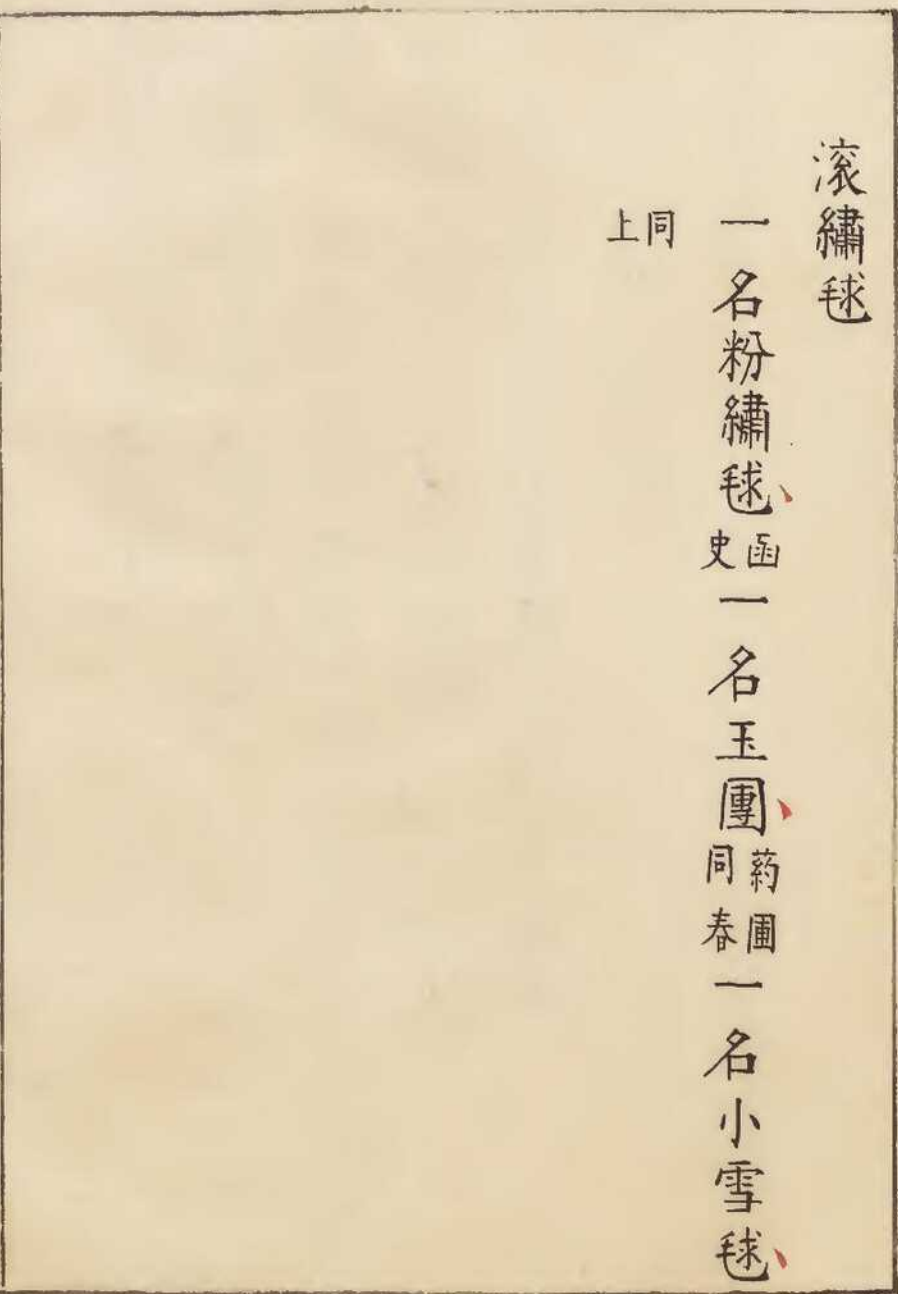 滚繡毬
一名粉繡毬函史一名玉團葯圃同春一名小雪毬
同上